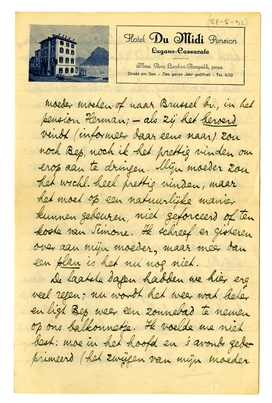 (27-5-52)
Hotel Du Midi Pension
Lugano-Cassarate
Direkt am See - Das ganze Jahr geöffnet - Tel.
moeder moeten of naar Brussel bv., in het
pension Herman; — als zij het beroerd
vindt (informeer daar eens naar) zou
noch Bep, noch ik het prettig vinden om
erop aan te dringen. Mijn moeder zou
het wschl. heel prettig vinden, maar
het moet op een natuurlijke manier
kunnen gebeuren, niet geforceerd of ten
koste van Simone. Ik schreef er gisteren
over aan mijn moeder, maar meer dan
een plan is het nu nog niet.
De laatste dagen hadden we hier erg
veel regen; nu wordt het weer wat beter
en ligt Bep weer een zonnebad te nemen
op ons balkonnetje. Ik voelde me niet
best: moe in het hoofd en 's avonds gede-
primeerd (het zwijgen van mijn moeder